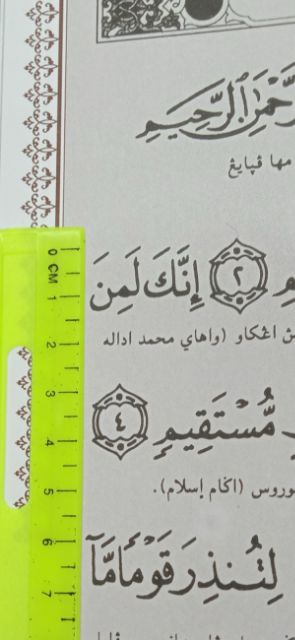 الرَّحِيمِ
مها ڤڽايڠ
٢ إِنَّكَ لَمِنَ
اڠكاو (واهاي محمد اداله
مُّسْتَقِيمٍ ٤
(اڬام إسلام).
لِتُنذِرَ قَوْمًا مَّا
0 CM 1 2 3 4 5 6 7